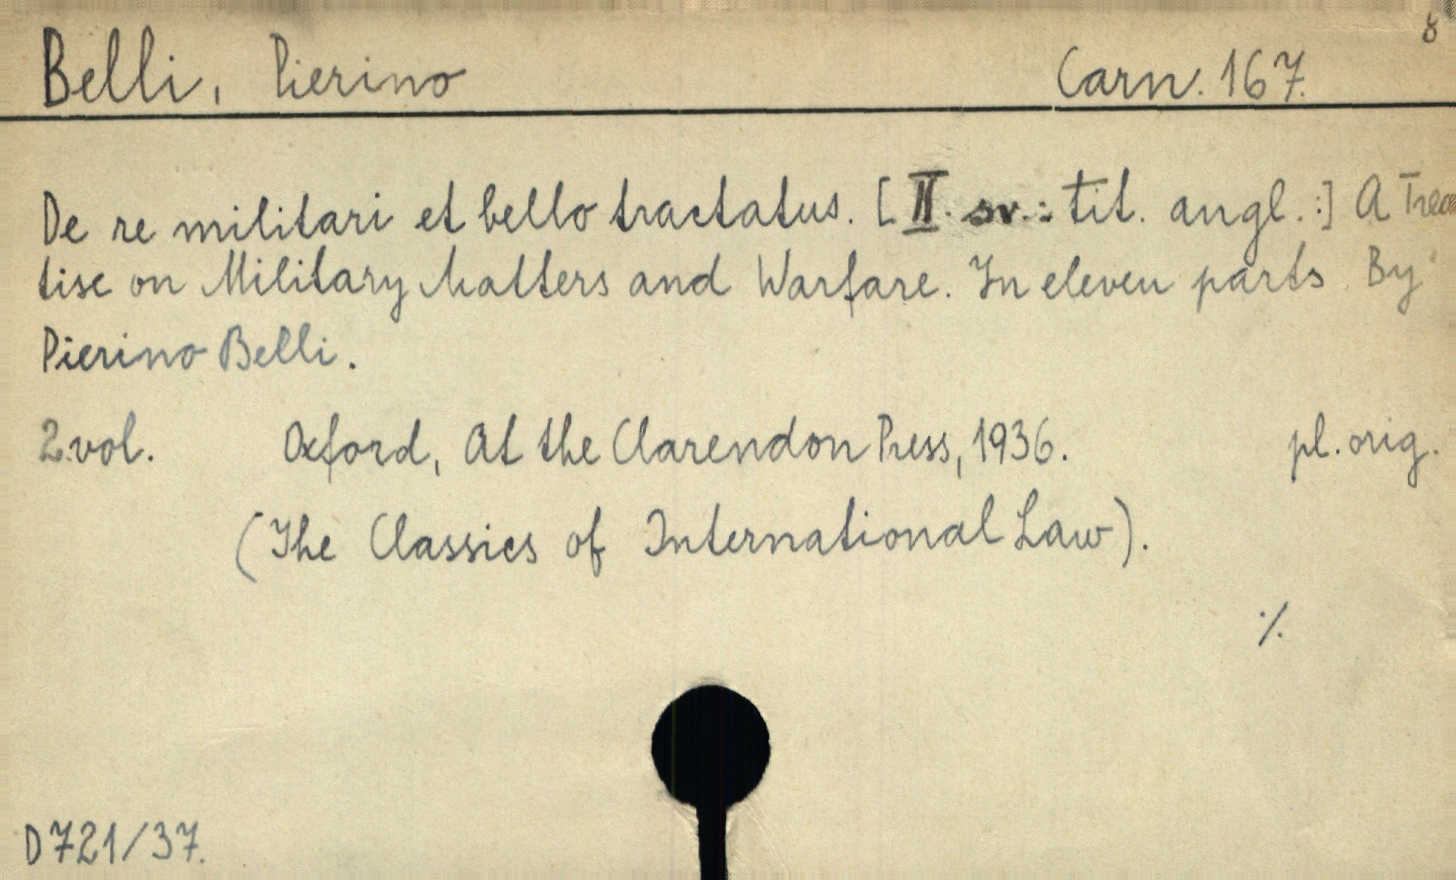 8
Belli, Pierino Carn. 167.
De re militari et bello tractatus. [II. sv.: tit. angl.:] A Trea
tise on Military Matters and Warfare. In eleven parts. By
Pierino Belli.
2.vol. Oxford, At the Clarendon Press, 1936. pl. orig.
(The Classics of International Law).
./.
D721/37.